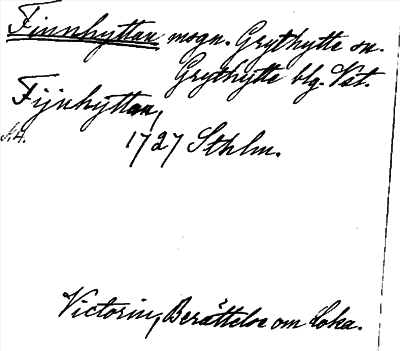 Finnhyttan mogn. Grythytte sn.
Grythytte blg. Vst.
Fijnhyttan,
S.A.
1727 Sthlm.
Victorin, Berättelse om Loka.